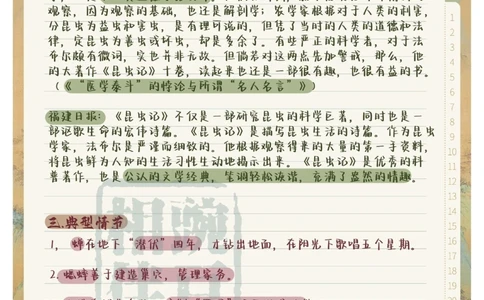 观察，因为观察的基础，也还是解剖学；农学家根据对于人类的利害，
分昆虫为益虫和害虫，是有理可说的，但凭了当时的人类的道德和法
律，定昆虫为善虫或坏虫，却是多余了。有些严正的科学者，对于法
布尔颇有微词，实也并非无故。但倘若对这两点先加警戒，那么，他
的大著作《昆虫记》十卷，读起来也还是一部很有趣，也很有益的书。
（《“医学泰斗”的悖论与所谓“名人名言”》）
福建日报：《昆虫记》不仅是一部研究昆虫的科学巨著，同时也是一
部讴歌生命的宏伟诗篇。《昆虫记》是描写昆虫生活的诗篇。作为昆虫
学家，法布尔是严谨而细致的。他根据观察得来的大量的第一手资料，
将昆虫鲜为人知的生活习性生动地揭示出来。《昆虫记》是优秀的科
普著作，也是公认的文学经典，笔调轻松诙谐，充满了盎然的情趣。
三.典型情节
1，蝉在地下“潜伏”四年，才钻出地面，在阳光下歌唱五个星期。
2.蟋蟀善于建造巢穴，管理家务。
1
2
3
4
5
6
7
8
9
10
11
12
13
14
15
16
17
18
19
20